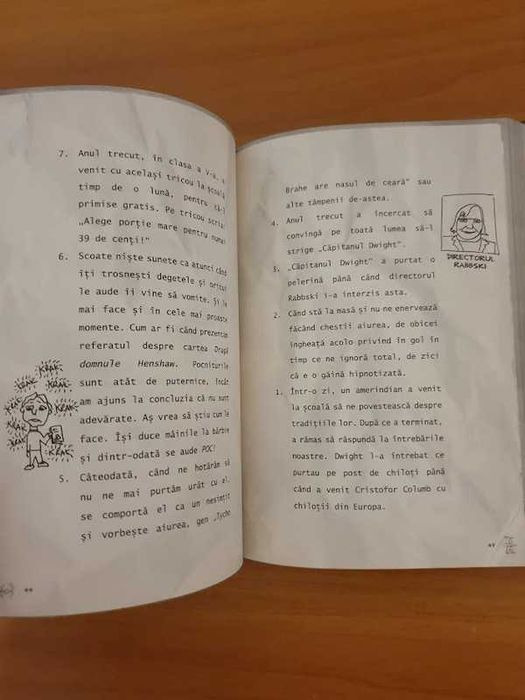 7. Anul trecut, în clasa a V-a, a
venit cu același tricou la școală
timp de o lună, pentru că-l
primise gratis. Pe tricou scria:
„Alege porție mare pentru numai
39 de cenți!”
6. Scoate niște sunete ca atunci când
îți trosnești degetele și oricui
le aude îi vine să vomite. Și le
mai face și în cele mai proaste
momente. Cum ar fi când prezentăm
referatul despre cartea Dragă
domnule Henshaw. Pocniturile
sunt atât de puternice, încât
am ajuns la concluzia că nu sunt
adevărate. Aș vrea să știu cum le
face. Își duce mâinile la bărbie
și dintr-odată se aude POC!
5. Câteodată, când ne hotărâm să
nu ne mai purtăm urât cu el,
se comportă el ca un nesimțit
și vorbește aiurea, gen „Tycho
KRAK
KRAK
KRAK
KRAK
KRAK
KRAK
Brahe are nasul de ceară” sau
alte tâmpenii de-astea.
4. Anul trecut a încercat să
convingă pe toată lumea să-l
strige „Căpitanul Dwight”.
3. „Căpitanul Dwight” a purtat o
pelerină până când directorul
Rabbski i-a interzis asta.
2. Când stă la masă și nu ne enervează
făcând chestii aiurea, de obicei
îngheață acolo privind în gol în
timp ce ne ignoră total, de zici
că e o găină hipnotizată.
1. Într-o zi, un amerindian a venit
la școală să ne povestească despre
tradițiile lor. După ce a terminat,
a rămas să răspundă la întrebările
noastre. Dwight l-a întrebat ce
purtau pe post de chiloți până
când a venit Cristofor Columb cu
chiloții din Europa.
DIRECTORUL
RABBSKI